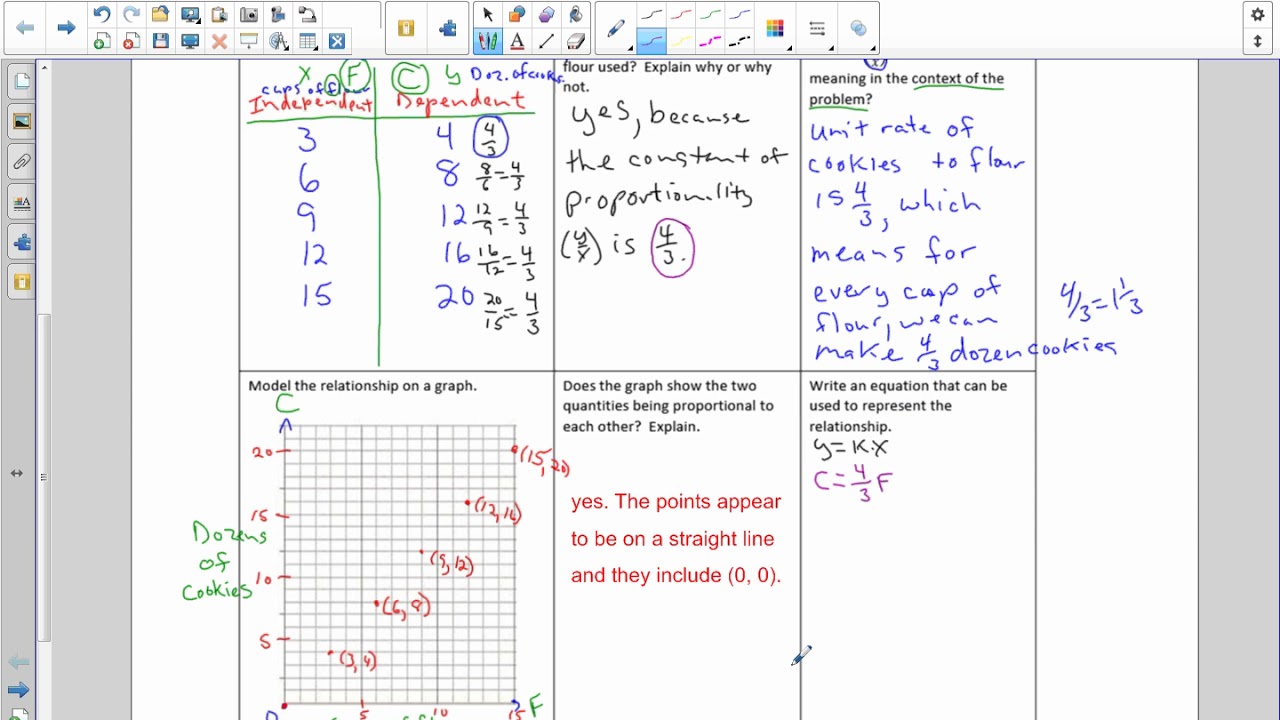 X F C y Doz. of cooks.
cups of flour
Independent Dependent
3 4 4/3
6 8 8/6=4/3
9 12 12/9=4/3
12 16 16/12=4/3
15 20 20/15=4/3
flour used? Explain why or why
not.
yes, because
the constant of
proportionality
(y/x) is 4/3.
meaning in the context of the
problem?
unit rate of
cookies to flour
is 4/3, which
means for
every cup of
flour, we can
make 4/3 dozen cookies
4/3=1 1/3
Model the relationship on a graph.
C
20
15
10
5
Dozens
of
Cookies
(15,20)
(12,16)
(9,12)
(6,8)
(3,4)
5 10 15 F
Does the graph show the two
quantities being proportional to
each other? Explain.
yes. The points appear
to be on a straight line
and they include (0, 0).
Write an equation that can be
used to represent the
relationship.
y=K·X
C=4/3 F